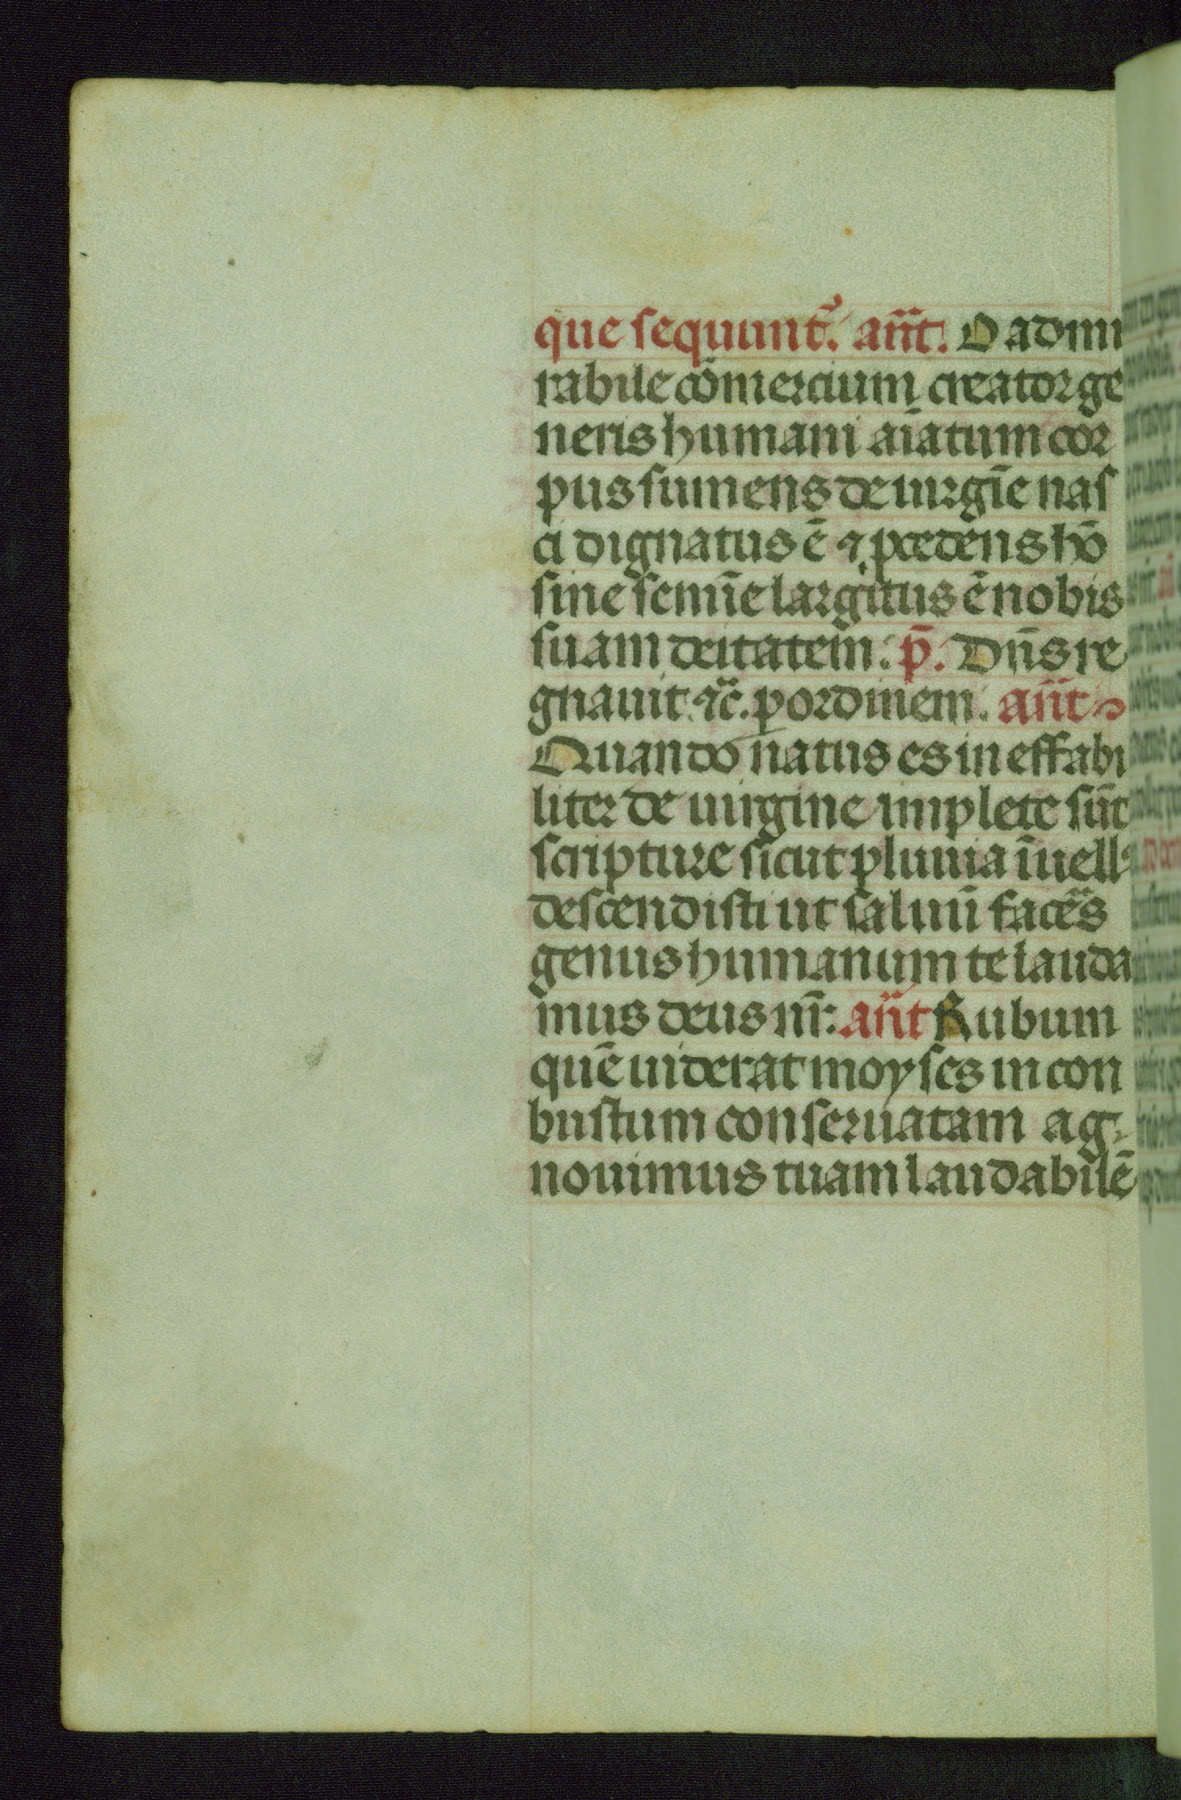 que sequunt᷑. an̄t. O admi
rabile cōmercium creator ge
neris humani aīatum cor
pus sumens de uirgīe nas
ci dignatus ē ⁊ p̱cedens hō
sine semīe largitus ē nobis
suam deitatem. p̄. Dn̄s re
gnauit ⁊c̄. p̱ ordinem. an̄t
Quando natus es in effabi
liter de uirgine implete sūt
scripture sicut pluuia ī uell᷒
descendisti ut saluū facēs
genus humanum te lauda
mus deus nr̄. an̄t Rubum
quē uiderat moyses in con
bustum conseruatam ag
nouimus tuam laudabilē